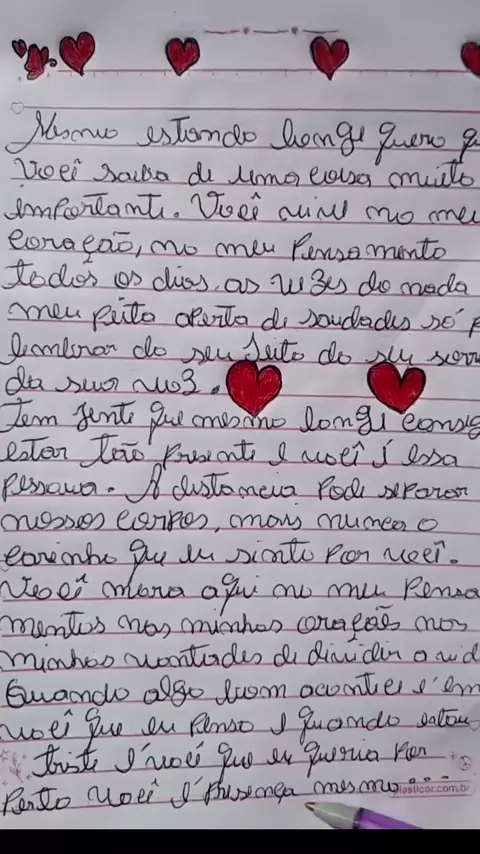 Mesmo estando longe quero q
Você saiba de uma coisa muito
importante. Você vive no meu
coração, no meu Pensamento
todos os dias, as ve3es do nada
meu peito aperta de saudades só p
lembrar do seu jeito do seu sorr
da sua vo3.
Tem gente que mesmo longe consig
estar tão presente e você é essa
pessoua. A distancia pode separar
nossos corpos, mais nunca o
carinho que eu sinto por você.
Você mora aqui no meu Pensa
mentos nas minhas orações nos
minhas vontades de dividir a vid
Quando algo bom acontece é em
você que eu Penso e quando estou
triste é você que eu queria Por
Perto você é presença mesmo...
plasticor.com.br